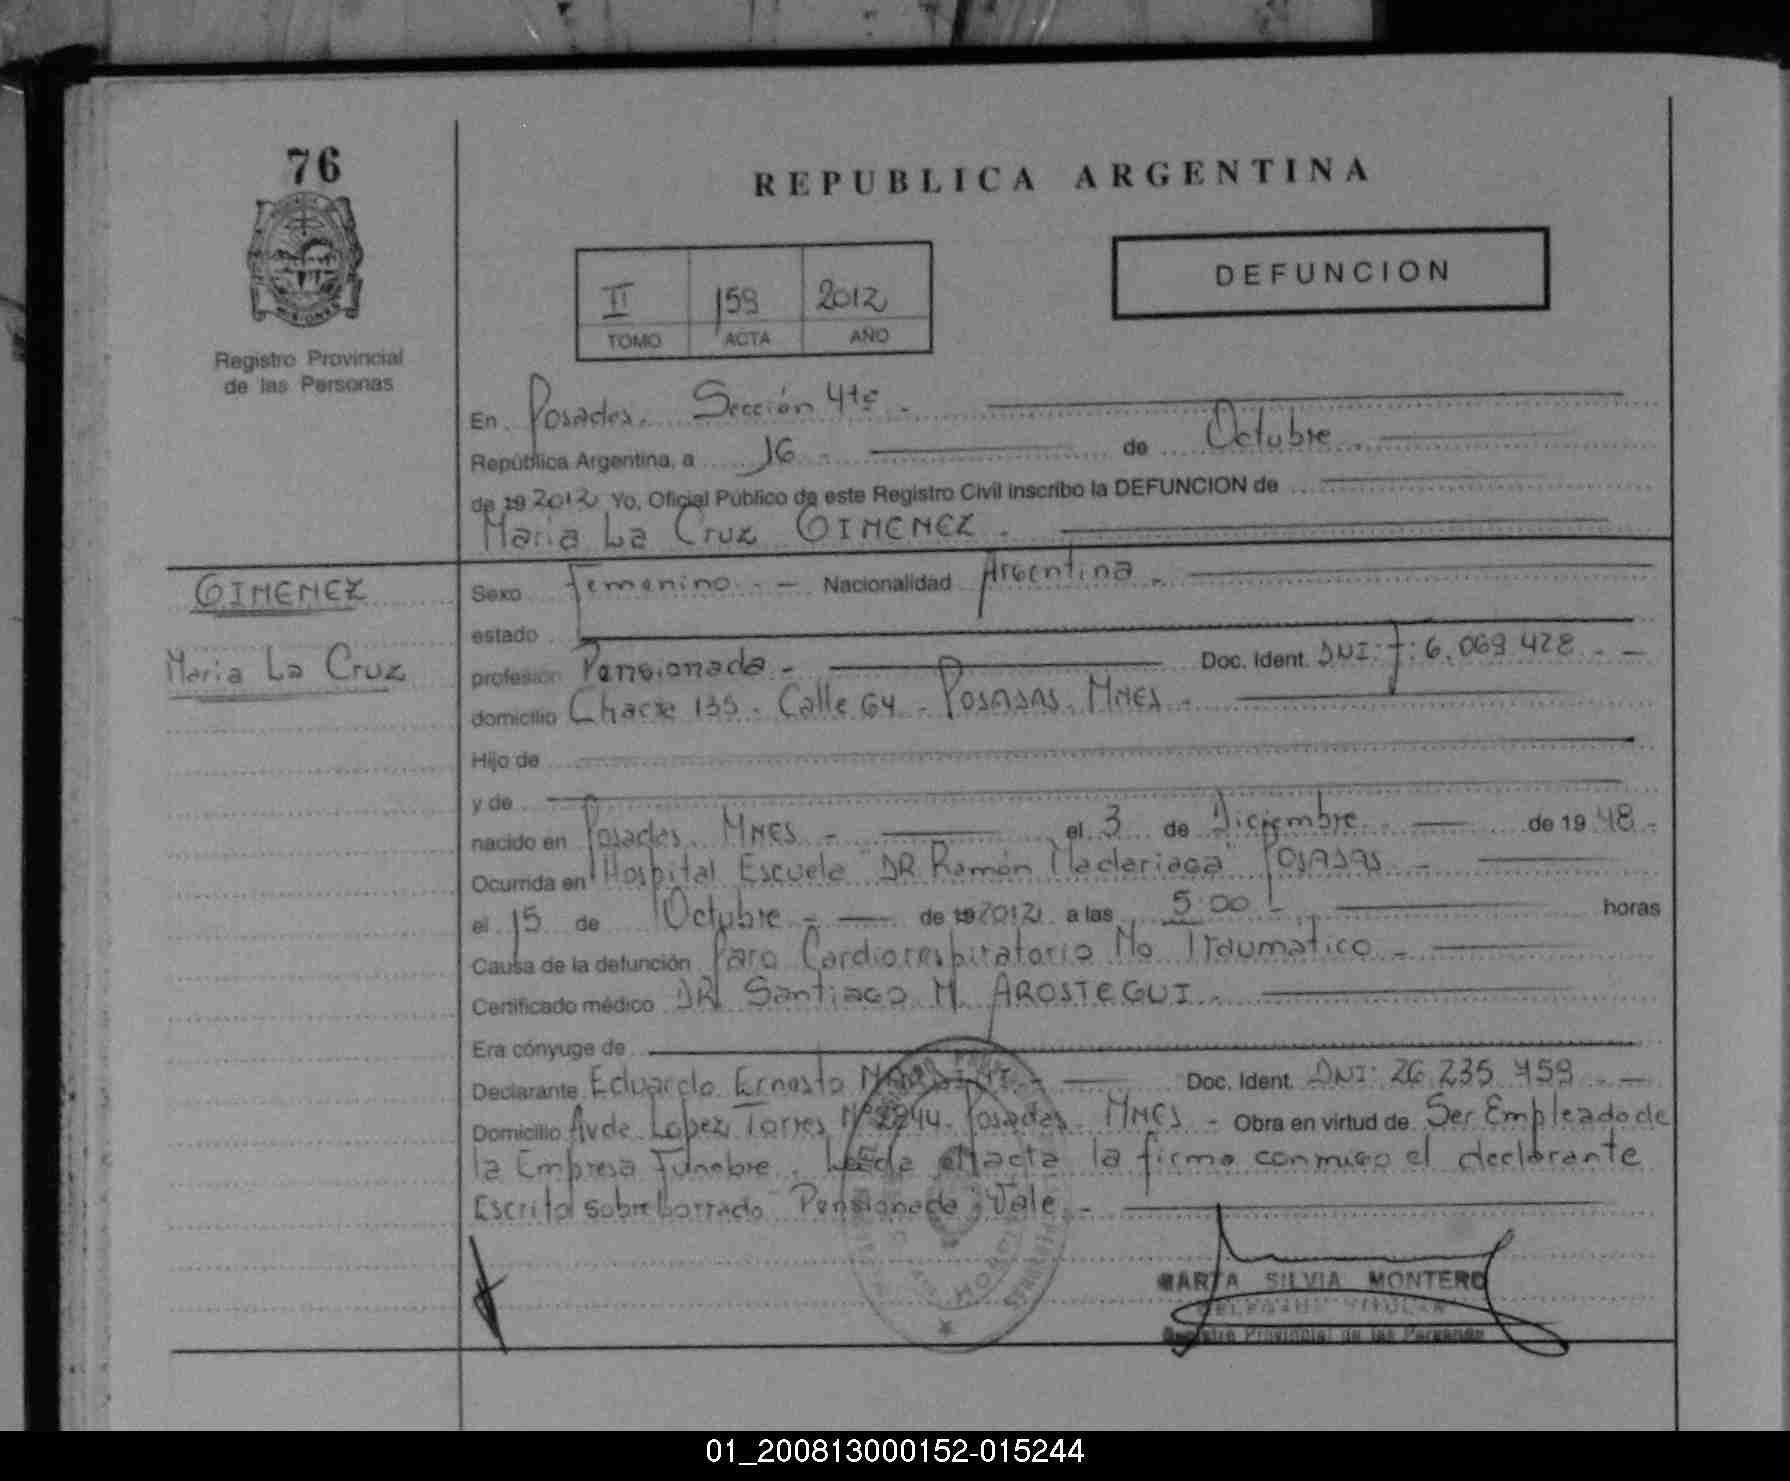 76
REPUBLICA ARGENTINA
DEFUNCION
II 159 2012
TOMO ACTA AÑO
Registro Provincial
de las Personas
En Posadas. Sección 4ta -
República Argentina, a 16 - de Octubre
de 19 2012 Yo, Oficial Público de este Registro Civil inscribo la DEFUNCION de
Maria La Cruz GIMENEZ.
GIMENEZ
Maria La Cruz
Sexo Femenino - Nacionalidad Argentina -
estado
profesión Pensionada - Doc. Ident. DNI: F: 6.069.428 -
domicilio Chacra 135 - Calle 64 - Posadas. Mnes -
Hijo de
y de
nacido en Posadas. Mnes - el 3 de Diciembre de 1948 -
Ocurrida en Hospital Escuela "DR Ramón Madariaga" Posadas -
el 15 de Octubre - de 19 2012 a las 5:00 - horas
Causa de la defunción Paro Cardiorespiratorio No Traumático -
Certificado médico DR Santiago M. AROSTEGUI -
Era cónyuge de
Declarante Eduardo Ernesto Doc. Ident. DNI: 26.235.459 -
Domicilio Avda Lopez Torres Nº Posadas. Mnes - Obra en virtud de Ser Empleado de
la Empresa Funebre. Leída el acta la firma conmigo el declarante
Escrito sobre borrado "Pensionada" Vale -
MARTA SILVIA MONTERO
DELEGADA TITULAR
Registro Provincial de las Personas
01_200813000152-015244